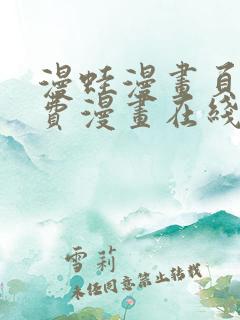 漫蛙漫畫頁
費漫畫在綫
雪莉
未任同意禁止转载